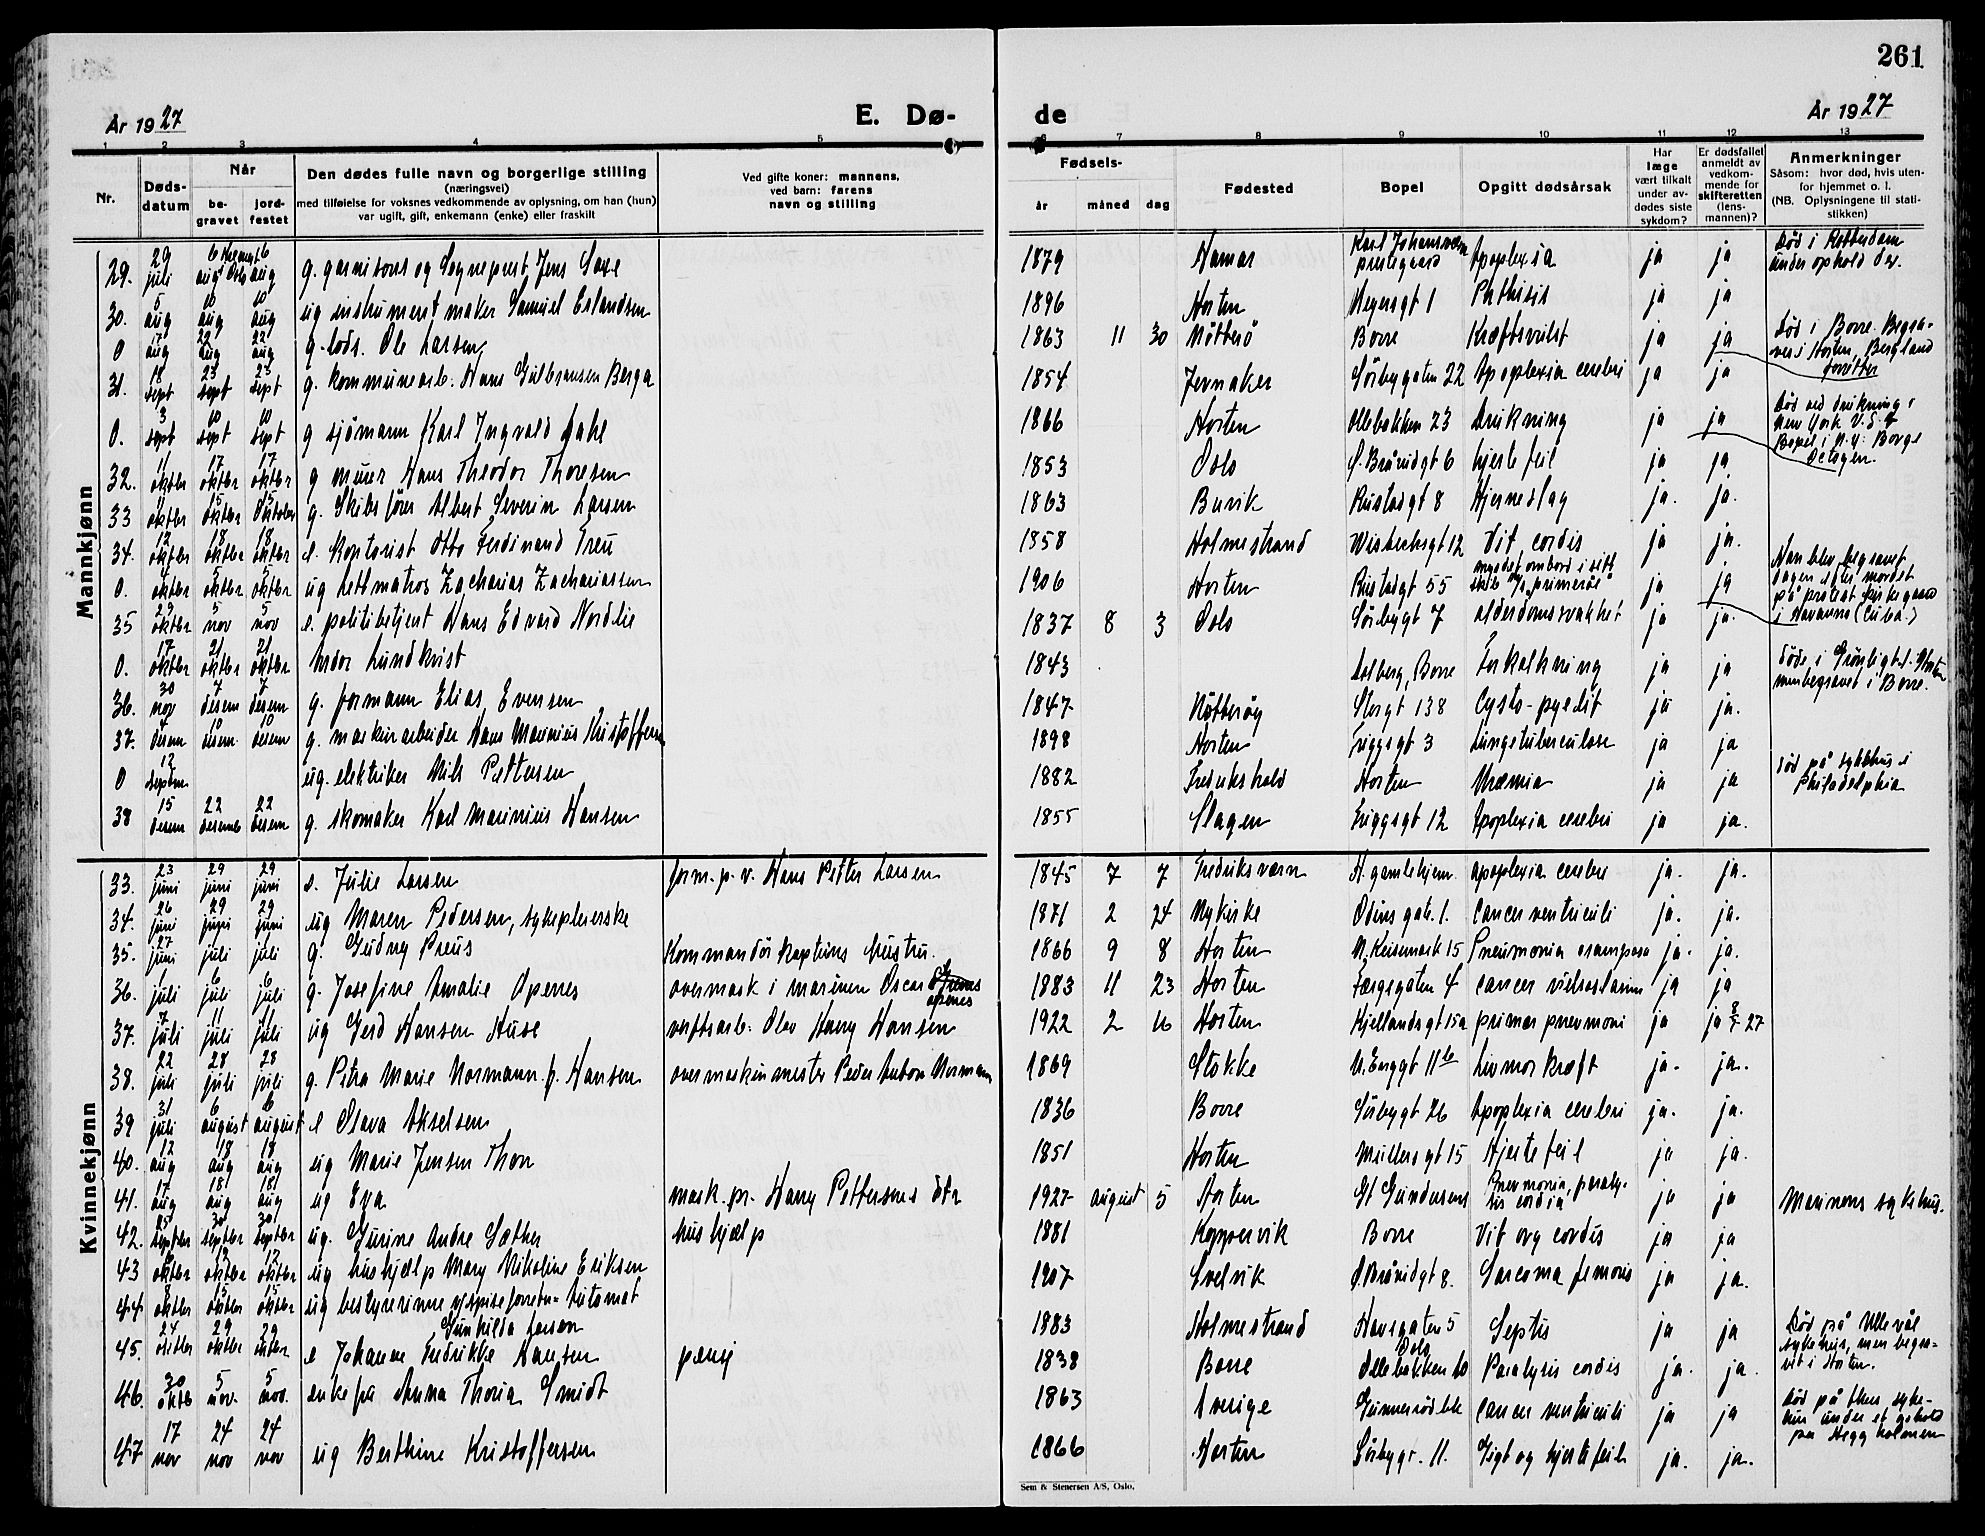 261
År 1927 E. Dø- de År 1927
1 2 3 4 5 6 7 8 9 10 11 12 13
Nr. Døds-datum Når be-gravet jord-festet Den dødes fulle navn og borgerlige stilling (næringsvei) med tilføielse for voksnes vedkommende av oplysning, om han (hun) var ugift, gift, enkemann (enke) eller fraskilt Ved gifte koner: mannens, ved barn: farens navn og stilling Fødsels- år måned dag Fødested Bopel Opgitt dødsårsak Har læge vært tilkalt under av-dødes siste sykdom? Er dødsfallet anmeldt av vedkom-mende for skifteretten (lens-mannen)? Anmerkninger Såsom: hvor død, hvis uten-for hjemmet o. l. (NB. Oplysningene til stati-stikken)
Mannkjønn
29. 29 juli 6 aug 6 aug g. garnisons og Sogneprest Jens Saxe 1879 Hamar Karl Johansvern prestegaard Apoplexia ja ja Død i Rotterdam under ophold der.
30. 5 aug 10 aug 10 aug ug instrumentmaker Samuel Erlandsen 1896 Horten Meyersgt 1 Phthisis ja ja
0 17 aug 22 aug 22 aug g. lods. Ole Larsen 1863 11 30 Nøtterø Borre Kræftsvulst ja ja Død i Borre. Begra-ves i Horten, Bergland forretter
31. 18 sept 23 sept 23 sept g. kommunearb. Hans Gulbransen Berga 1854 Jevnaker Sörbygaten 22 Apoplexia cerebri ja ja
0. 3 sept 10 sept 10 sept g sjömann Karl Ingvald Dahl 1866 Horten Ollebakken 23 Drukning ja ja Død ved drukning i New York U.S.A Bopel i N.Y. Borge
32. 11 oktbr 17 oktbr 17 oktbr g murer Hans Theodor Thoresen 1853 Oslo S. Bråvidgt 6 hjertefeil ja ja
33 11 oktbr 15 oktbr 15 Oktober g. Skibsförer Albert Severin Larsen 1863 Buvik Rustadgt 8 Hjerneslag ja. ja.
34. 12 oktber 18 oktbr 18 oktbr e. Kontorist Otto Ferdinand Treu 1858 Holmestrand Wistechsgt 12 Vit. cordis ja ja.
0. 4 oktbr 5 oktbr 5 oktbr ug lettmatros Zacharias Zachariassen 1906 Horten Rustadgt 55 myrdet ombord i sitt skib "primerose" ja ja Han blev begravet dagen efter mordet på protest. kirkegaard i Havanna (Cuba.)
35 29 oktbr 5 nov 5 nov e. politibetjent Hans Edvard Nordlie 1837 8 3 Oslo Sörbygt 7 alderdomssvakhet ja ja.
0. 17 oktbr 21 oktbr 21 oktbr Andor Lundkvist 1843 Solberg, Borre Forkalkning ja ja døde i Grönligt. i Horten men begravet i Borre.
36. 30 nov 7 desem 7 desem g. formann Elias Evensen 1847 Nøtterøy Storgt 138 Cysto-pyelit ja ja.
37. 4 desem 10 desem 10 desem g. maskinarbeider Hans Marinius Kristoffersen 1898 Horten Friggsgt 3 Lungetuberculose ja ja
0 12 septem ug. elektriker Nils Pettersen 1882 Fredrikshald Horten Uræmia ja ja død på sykehus i Philadelphia
38 15 desem 22 desemb 22 desem g. skomaker Karl Marinius Hansen 1855 Slagen Friggsgt 12 Apoplexia cerebri ja ja.
Kvinnekjønn
33. 23 juni 29 juni 29 juni e. Julie Larsen form. p. v. Hans Petter Larsen 1845 7 7 Fredriksværn H. gamlehjem apoplexia cerebri ja. ja.
34. 26 juni 29 juni 29 juni ug Maren Pedersen, sykepleierske 1871 2 24 Nykirke Odins gate. 1. Cancer ventriculi ja. ja.
35. 27 juni juli juli g. Gudny Preus Kommandörkapteins hustru. 1866 9 8 Horten N. Keisemark 15 Pneumonia crouposa ja. ja.
36. 1 juli 6 juli 6 juli g. Josefine Amalie Openes overmask i marinen Oscar Openes 1883 11 23 Horten Færgegaten 4 Cancer ja ja
37. 7 juli 11 juli 11 juli ug Gerd Hansen Huse verftsarb. Olav Harry Hansen 1922 2 16 Horten Kjellandsgt 15a primær pnevmoni ja ja 8/7 27
38. 22 juli 28 juli 28 juli g. Petra Marie Normann f. Hansen overmaskinmester Peder Anton Normann 1869 Stokke N. Enggt 11b Livmorkræft ja. ja.
39 31 juli 6 august 6 august e Olava Akselsen 1836 Borre Sörbygt 26 Apoplexia cerebri ja. ja.
40. 12 aug 18 aug 18 aug ug Marie Jensen Thon 1851 Horten Müllersgt 15 Hjertefeil ja ja.
41. 17 aug 18 aug 18 aug ug Eva mask. pr. Harry Pettersens dtr 1927 august 5 Horten St Gundersens Pnevmonia, paraly-sis cordia ja ja Marinens sykehus.
42. 25 septbr 30 septbr 30 septbr ug. Gurine Andre Sæther hushjælp 1881 Kopperviк Borre Vit org cordis ja ja
43 6 oktbr 12 oktbr 12 oktbr ug hushjælp Mary Nikoline Eriksen 1907 Svelvik S. Bråvidgt 8. Sarcoma femoris ja ja.
44 8 oktbr 15 oktbr 15 oktbr ug bestyrerinne v/spiseforretn. Automat Gunhilda Larsen 1883 Holmestrand Havsgaten 5 Oslo Septis ja ja Død på Ullevål sykehus, men begra-vet i Horten.
45. 24 oktbr 29 oktbr 29 oktbr e Johanne Fredrikke Hansen pensj 1838 Borre Ollebakken 10 Paralysis cordis ja. ja.
46. 30 oktb 5 nov. 5 nov. enkefru Anna Thoria Smidt 1863 Sverige Gunnerödbk Cancer ventriculi ja ja død på syke-hus under et ophold paa Heggholmen
47 17 nov 24 nov 24 nov ug Berthine Kristoffersen 1866 Horten Sörbygt. 11. Gigt og hjertefeil ja. ja.
Sem & Stenersen A/S, Oslo.